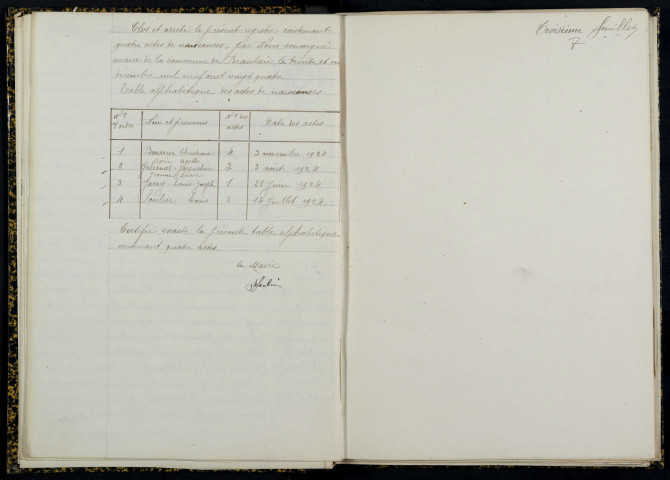 Clos et arrêté le présent registre contenant
quatre actes de naissances, par Nous soussigné
maire de la commune de Beaulieu, le trente et un
décembre mil neuf cent vingt quatre
Table alphabétique des actes de naissances
Nos d'ordre Nom et prénoms Nos des actes Date des actes
1 Christiane 4 3 novembre 1924
Marie
2 Jacqueline 3 3 août 1924
Jeanne
3 Louis Joseph 1 28 Juin 1924
4 Soulier Louis 2 14 Juillet 1924
Certifié exacte la présente table alphabétique
contenant quatre actes
Le Maire
Troisième feuillet
7